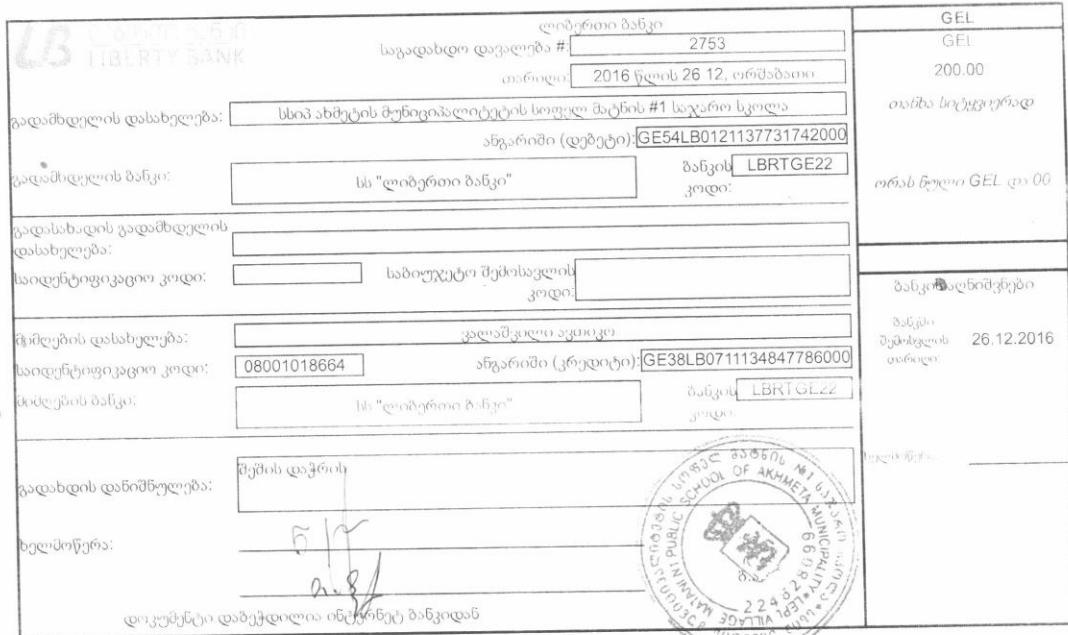 ლიბერთი ბანკი
LB ლიბერთი ბანკი
LIBERTY BANK
საგადახდო დავალება #: 2753
თარიღი: 2016 წლის 26 12, ორშაბათი
გადამხდელის დასახელება: სსიპ ახმეტის მუნიციპალიტეტის სოფელ მატნის #1 საჯარო სკოლა
ანგარიში (დებეტი): GE54LB0121137731742000
გადამხდელის ბანკი: სს "ლიბერთი ბანკი" ბანკის კოდი: LBRTGE22
გადასახადის გადამხდელის
დასახელება:
საიდენტიფიკაციო კოდი: საბიუჯეტო შემოსავლის
კოდი:
მიმღების დასახელება: ვალაშვილი ავთიკო
საიდენტიფიკაციო კოდი: 08001018664 ანგარიში (კრედიტი): GE38LB0711134847786000
მიმღების ბანკი: სს "ლიბერთი ბანკი" ბანკის კოდი: LBRTGE22
გადახდის დანიშნულება: შეშის დაჭრის
ხელმოწერა:
ბ.ა.
დოკუმენტი დაბეჭდილია ინტერნეტ ბანკიდან
GEL
GEL
200.00
თანხა სიტყვიერად
ორას ნული GEL და 00
ბანკის აღნიშვნები
ბანკში
შემოსვლის 26.12.2016
თარიღი:
ხელმოწერა:
მუნიციპალიტეტის სოფელ მატნის №1 საჯარო სკოლა * სსიპ
LEPL VILLAGE MATANI N1 PUBLIC SCHOOL OF AKHMETA MUNICIPALITY *